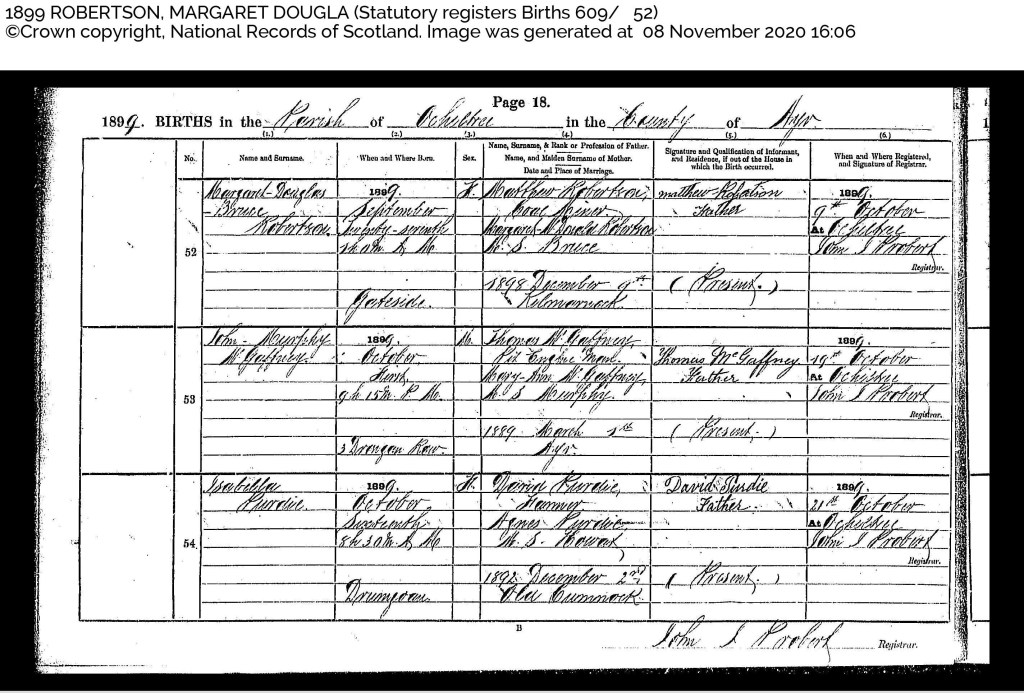 1899 ROBERTSON, MARGARET DOUGLA (Statutory registers Births 609/ 52)
©Crown copyright, National Records of Scotland. Image was generated at 08 November 2020 16:06
Page 18.
1899. BIRTHS in the Parish of Ochiltree in the County of Ayr
(1.) (2.) (3.) (4.) (5.) (6.)
No. Name and Surname. When and Where Born. Sex. Name, Surname, & Rank or Profession of Father. Name, and Maiden Surname of Mother. Date and Place of Marriage. Signature and Qualification of Informant, and Residence, if out of the House in which the Birth occurred. When and Where Registered, and Signature of Registrar.
52
Margaret Douglas
Bruce
Robertson
1899.
September
Twenty-seventh
A. M.
Gateside.
F.
Matthew Robertson,
Coal Miner
Margaret McDonald Robertson
M. S. Bruce
1898 December 9th
Kilmarnock.
Matthew Robertson
Father
(Present.)
1899.
9th October
At Ochiltree
John I Probert
Registrar.
53
John Murphy
McGaffney
1899.
October
First,
9h 15m P. M.
3 Drongan Row.
M.
Thomas McGaffney
Pit Engine
Mary Ann McGaffney,
M. S. Murphy.
1889 March 1st
Ayr.
Thomas McGaffney
Father
(Present.)
1899.
19th October
At Ochiltree
John I Probert
Registrar.
54
Isabella
Purdie.
1899.
October
Sixteenth
8h 30m A. M.
Drumjoan
F.
David Purdie,
Farmer
Agnes Purdie
M. S. Howat,
1892 December 2nd
Old Cumnock.
David Purdie
Father
(Present.)
1899.
21st October
At Ochiltree
John I Probert
Registrar.
B
John I Probert Registrar.